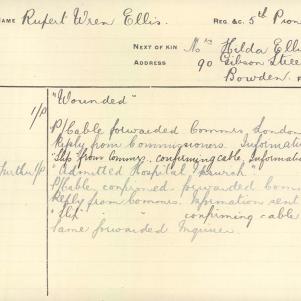 NAME Rupert Wren Ellis. REG &C. 5th Pion
NEXT OF KIN Mrs Hilda Elli
ADDRESS 90 Gibson Stree
Bowden.
I/P "Wounded"
P/Cable forwarded Commrs London
Reply from Commissioners. Information
Slip from Commrs. confirming cable, Information
Further I/P "Admitted Hospital
P/Cable confirmed forwarded Com
Reply from Commrs. Information sent
"Slip" " confirming cable
Same forwarded Inquirer.